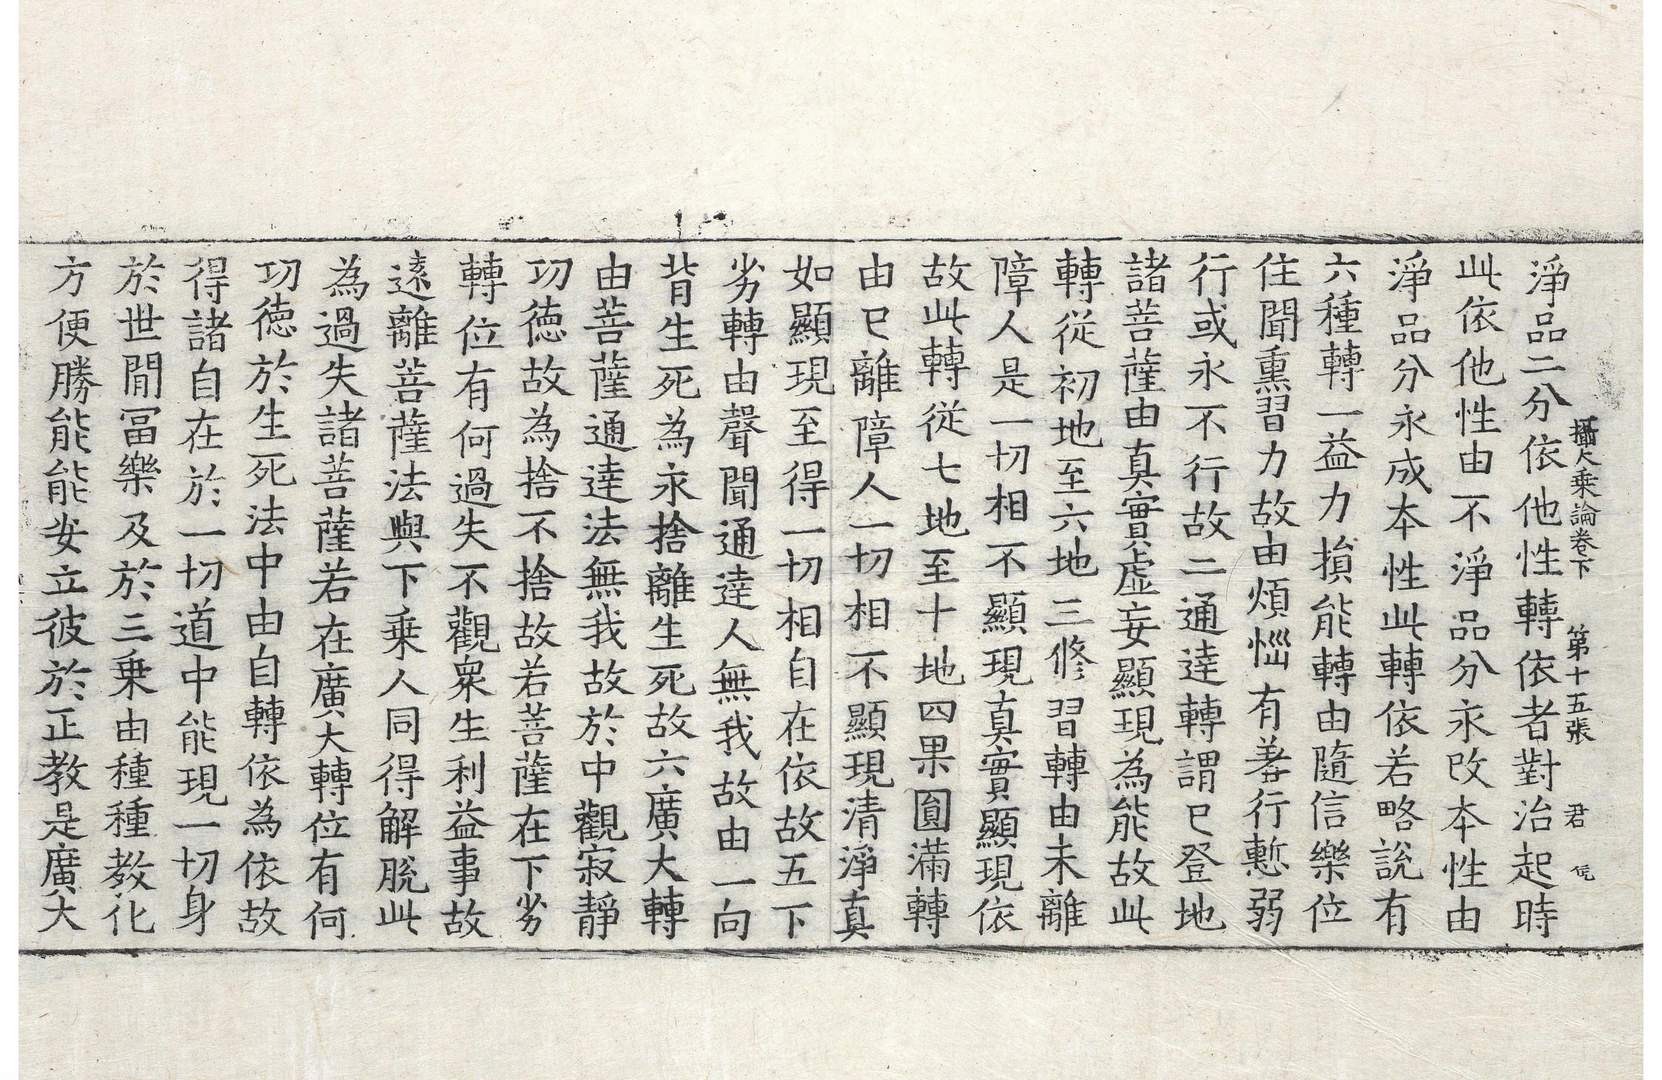 攝大乘論卷下 第十五張 君
淨品二分依他性轉依者對治起時
此依他性由不淨品分永改本性由
淨品分永成本性此轉依若略說有
六種轉一益力損能轉由隨信樂位
住聞熏習力故由煩惱有羞行慙弱
行或永不行故二通達轉謂已登地
諸菩薩由真實虛妄顯現為能故此
轉從初地至六地三修習轉由未離
障人是一切相不顯現真實顯現依
故此轉從七地至十地四果圓滿轉
由已離障人一切相不顯現清淨真
如顯現至得一切相自在依故五下
劣轉由聲聞通達人無我故由一向
背生死為永捨離生死故六廣大轉
由菩薩通達法無我故於中觀寂靜
功德故為捨不捨故若菩薩在下劣
轉位有何過失不觀衆生利益事故
遠離菩薩法與下乘人同得解脫此
為過失諸菩薩若在廣大轉位有何
功德於生死法中由自轉依為依故
得諸自在於一切道中能現一切身
於世間冨樂及於三乘由種種教化
方便勝能能安立彼於正教是廣大